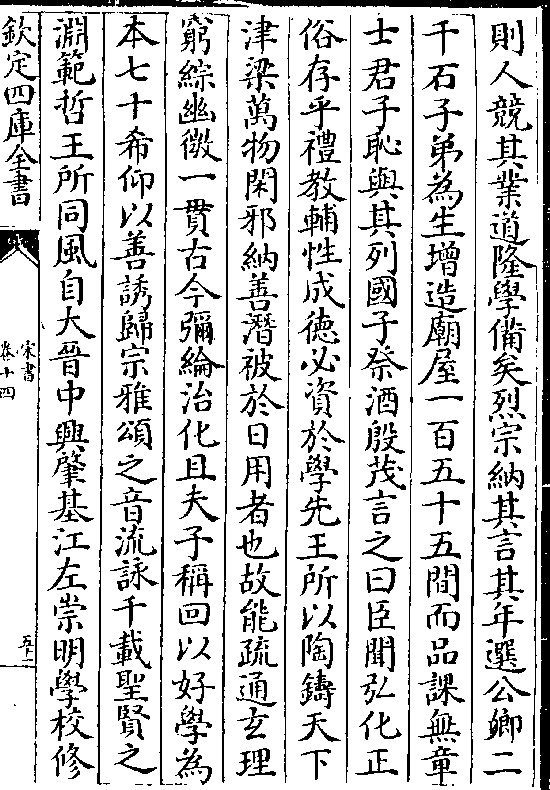 則人競其業道隆學備矣烈宗納其言其年選公卿二
千石子弟為生增造廟屋一百五十五間而品課無章
士君子恥與其列國子祭酒殷茂言之曰臣聞弘化正
俗存乎禮教輔性成德必資於學先王所以陶鑄天下
津梁萬物閑邪納善潛被於日用者也故能疏通玄理
窮綜幽微一貫古今彌綸治化且夫子稱回以好學為
本七十希仰以善誘歸宗雅頌之音流詠千載聖賢之
淵範哲王所同風自大晉中興肇基江左崇明學校修
欽定四庫全書
宋書
卷十四
五十一